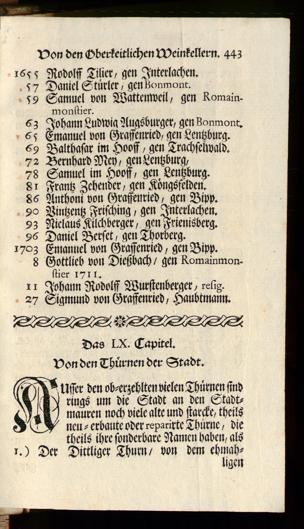 Von den Oberkeitlichen Weinkellern. 443
1655 Rodolff Tilier, gen Interlachen.
57 Daniel Stürler, gen Bonmont.
59 Samuel von Wattenweil, gen Romain-
monstier.
63 Johann Ludwig Augsburger, gen Bonmont.
65 Emanuel von Graffenried, gen Lentzburg.
69 Balthasar im Hooff, gen Trachselwald.
72 Bernhard Mey, gen Lentzburg,
78 Samuel im Hooff, gen Lentzburg.
81 Frantz Zehender, gen Köngsfelden.
86 Anthoni von Graffenried, gen Bipp.
90 Vintzentz Frisching, gen Interlachen.
93 Niclaus Kilchberger, gen Frienisberg.
96 Daniel Berset, gen Thorberg.
1703 Emanuel von Graffenried, gen Bipp.
8 Gottlieb von Dießbach, gen Romainmon-
stier 1711.
11 Johann Rodolff Wurstenberger, resig.
27 Sigmund von Graffenried, Haubtmann.
Das LX. Capitel.
Von den Thürnen der Stadt.
AUsser den ob-erzehlten vielen Thürnen sind
rings um die Stadt an den Stadt-
mauren noch viele alte und starcke, theils
neu-erbaute oder reparirte Thürne, die
theils ihre sonderbare Namen haben, als
1.) Der Dittliger Thurn, von dem ehmah-
ligen